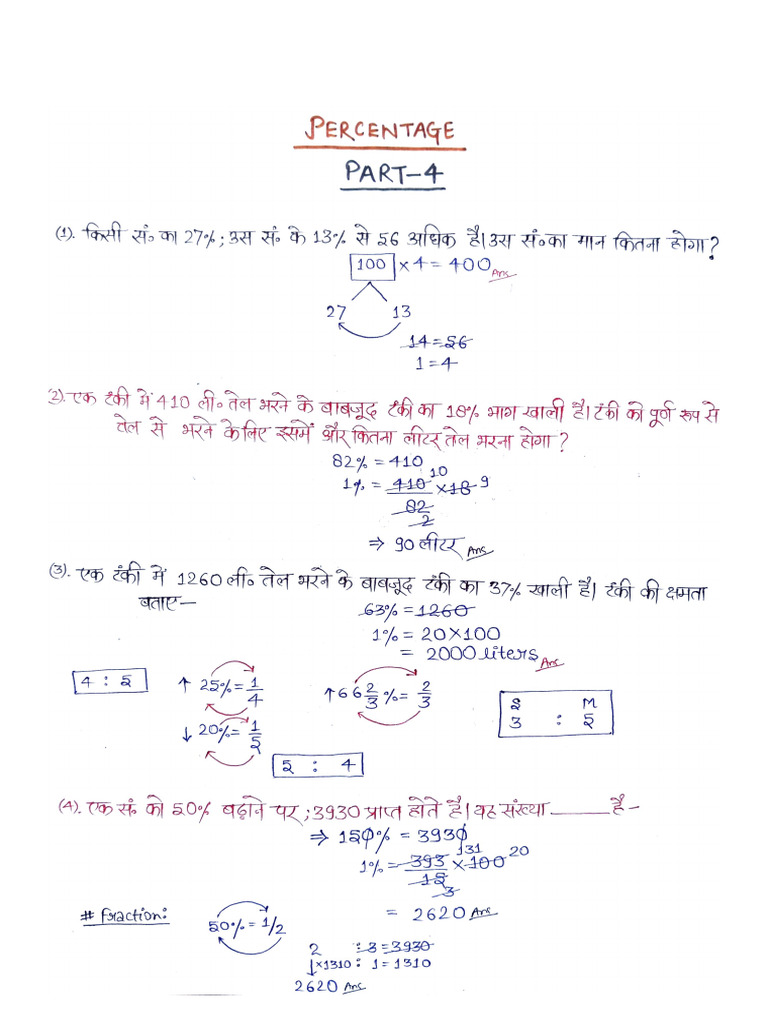 PERCENTAGE
PART-4
(1). किसी सं॰ का 27%; उस सं॰ के 13% से 56 अधिक है। उस सं॰ का मान कितना होगा?
100 × 4 = 400 Ans
27 13
14 = 56
1 = 4
2). एक टंकी में 410 ली॰ तेल भरने के बाबजूद टंकी का 18% भाग खाली है। टंकी को पूर्ण रूप से
तेल से भरने के लिए इसमें और कितना लीटर तेल भरना होगा?
82% = 410
10
1% = 410 × 18 9
82
2
⇒ 90 लीटर Ans
(3). एक टंकी में 1260 ली॰ तेल भरने के बाबजूद टंकी का 37% खाली है। टंकी की क्षमता
बताए-
63% = 1260
1% = 20 × 100
= 2000 liters Ans
4 : 5
↑ 25% = 1/4
↑ 66 2/3 % = 2/3
S M
3 : 5
↓ 20% = 1/5
5 : 4
(4). एक सं॰ को 50% बढ़ाने पर ; 3930 प्राप्त होते है। वह संख्या ______ है -
⇒ 150% = 3930
131 20
1% = 393 × 100
15
3
= 2620 Ans
# Fraction:
50% = 1/2
2 : 3 = 3930
↓ ×1310 : 1 = 1310
2620 Ans